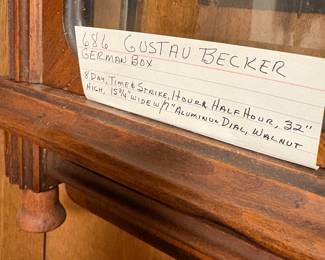 686 GUSTAV BECKER
GERMAN BOX
8 DAY, TIME & STRIKE, HOUR & HALF HOUR, 32"
HIGH, 15 3/4" WIDE W/7" ALUMINUM DIAL, WALNUT